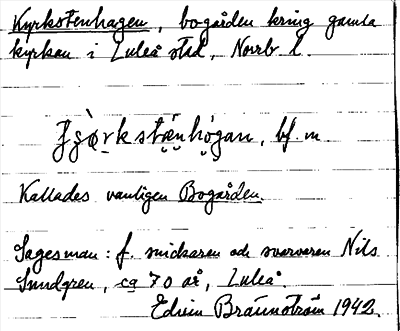 Kyrkstenhagen, bogården kring gamla
kyrkan i Luleå stad, Norrb. l.
bf. m
Kallades vanligen Bogården.
Sagesman: f. snickaren och svarvaren Nils
Sundgren, ca 70 år, Luleå.
Edvin Brännström 1942.